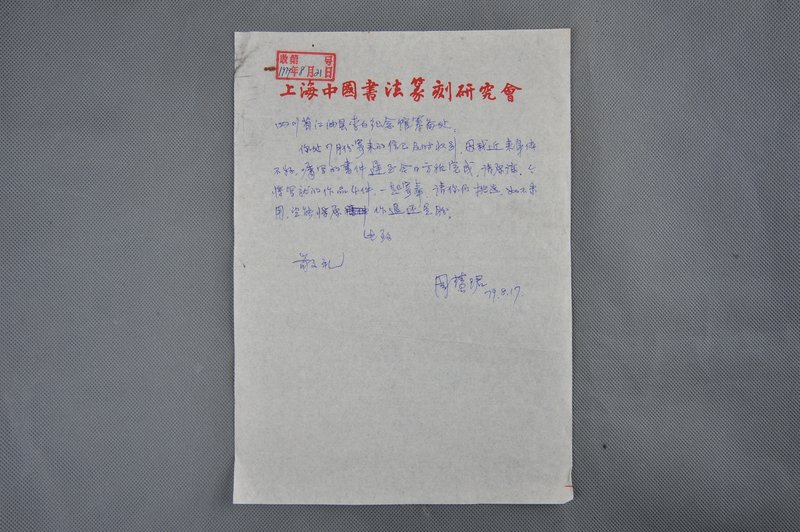 收第 号
1979年8月21日
上海中國書法篆刻研究會
四川省江油县李白纪念馆筹备处:
你处7月份寄来的信已及时收到,因我近来身体
不好,嘱写的书件迟至今日方始完成,请原谅。今
将写就的作品4件,一起寄奉,请你们挑选,如不采
用,望能将原件退还是盼。
此致
敬礼
周慧珺
79.8.17.